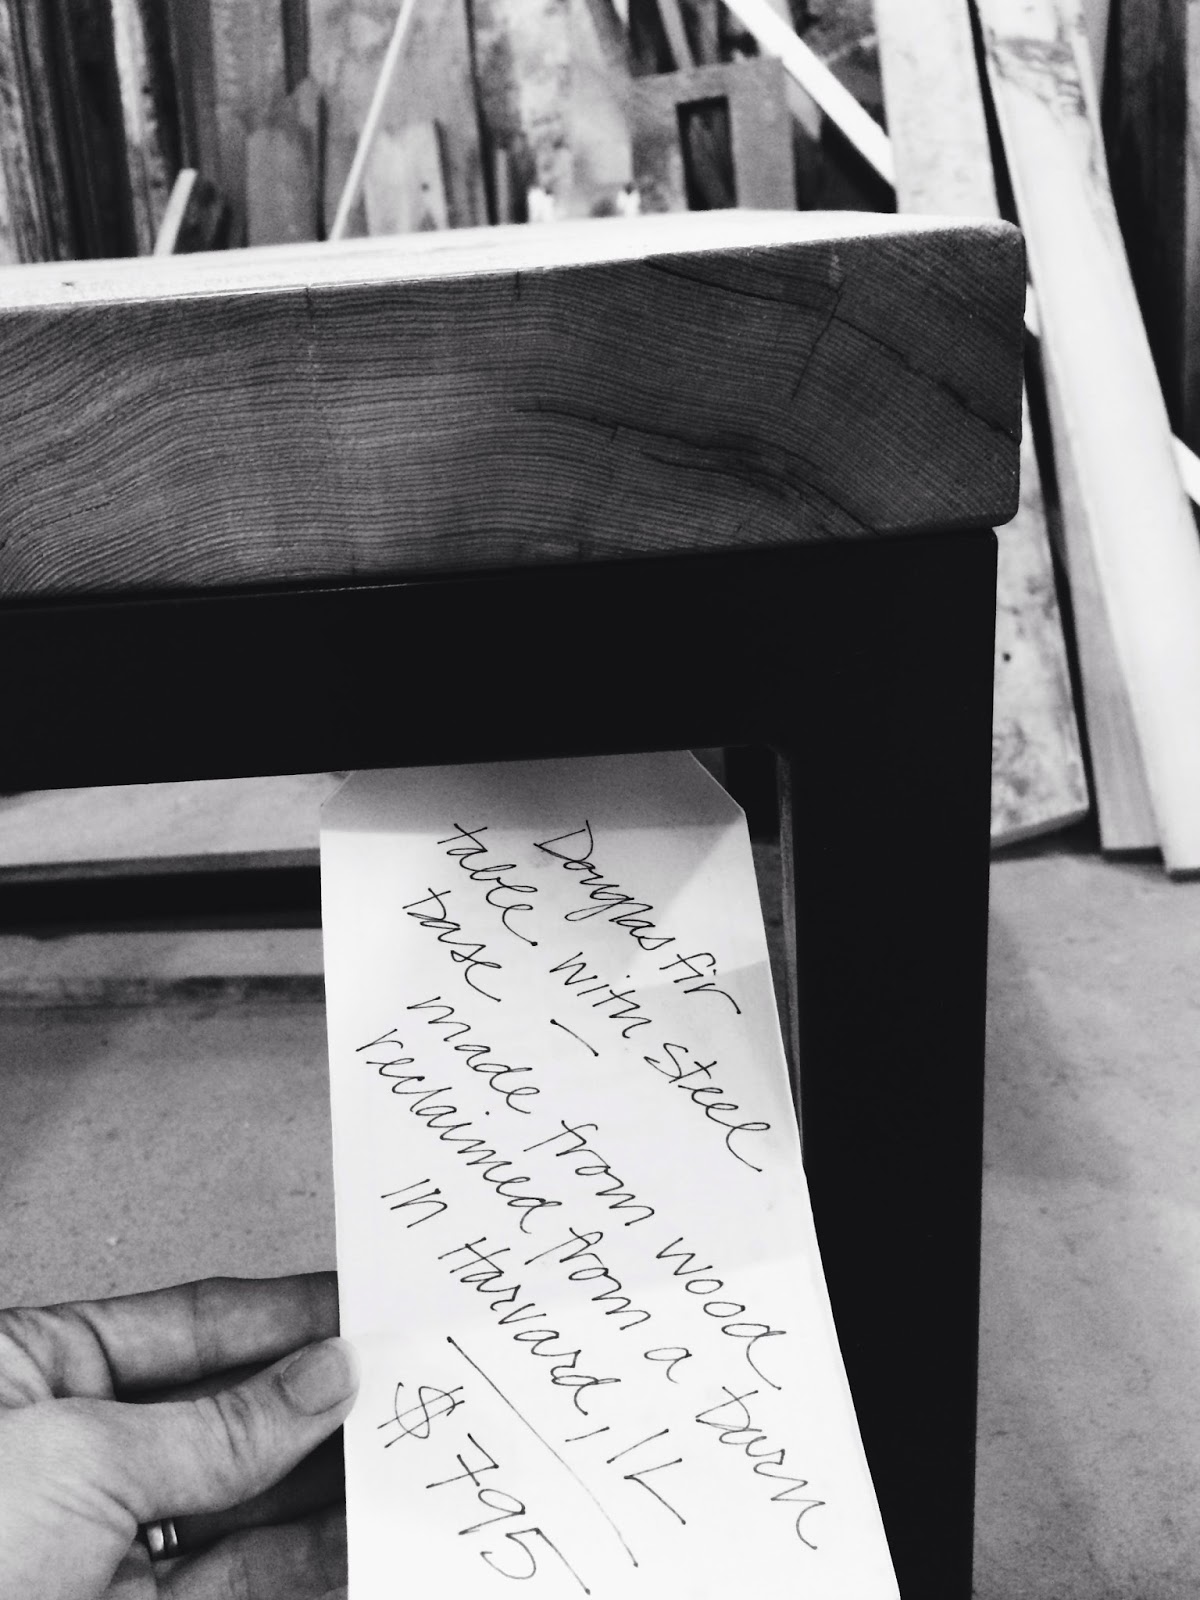 Douglas fir
table with steel
base –
made from wood
reclaimed from a barn
in Harvard, IL
$795